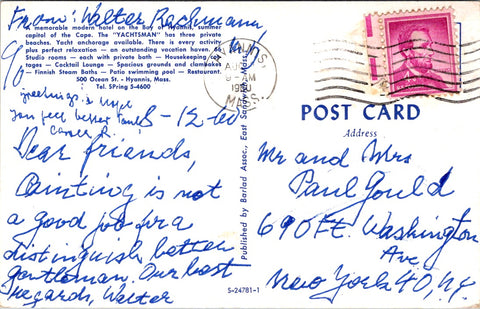 From: Walter Bachmann
A memorable modern hotel on the bay at Hyannis, summer
capitol of the Cape. The "YACHTSMAN" has three private
beaches. Yacht anchorage available. There is every activity
plus perfect relaxation — an outstanding vacation haven. 64
Studio rooms — each with private bath — Housekeeping cottages
— Cocktail Lounge — Spacious grounds and clambakes
— Finnish Steam Baths — Patio swimming pool — Restaurant.
500 Ocean St. - Hyannis, Mass.
Tel. SPring 5-4600
greetings & hope
you feel better
8-12-60
Dear friends,
Painting is not
a good job for a
distinguish better
gentleman. Our best
regards, Walter
Published by Berlad Assoc., East Sandwich, Mass.
S-24781-1
HYANNIS
AUG
9 - AM
1960
MASS.
POST CARD
Address
Mr and Mrs
Paul Gould
690 Ft. Washington
Ave
New York 40, N.Y.